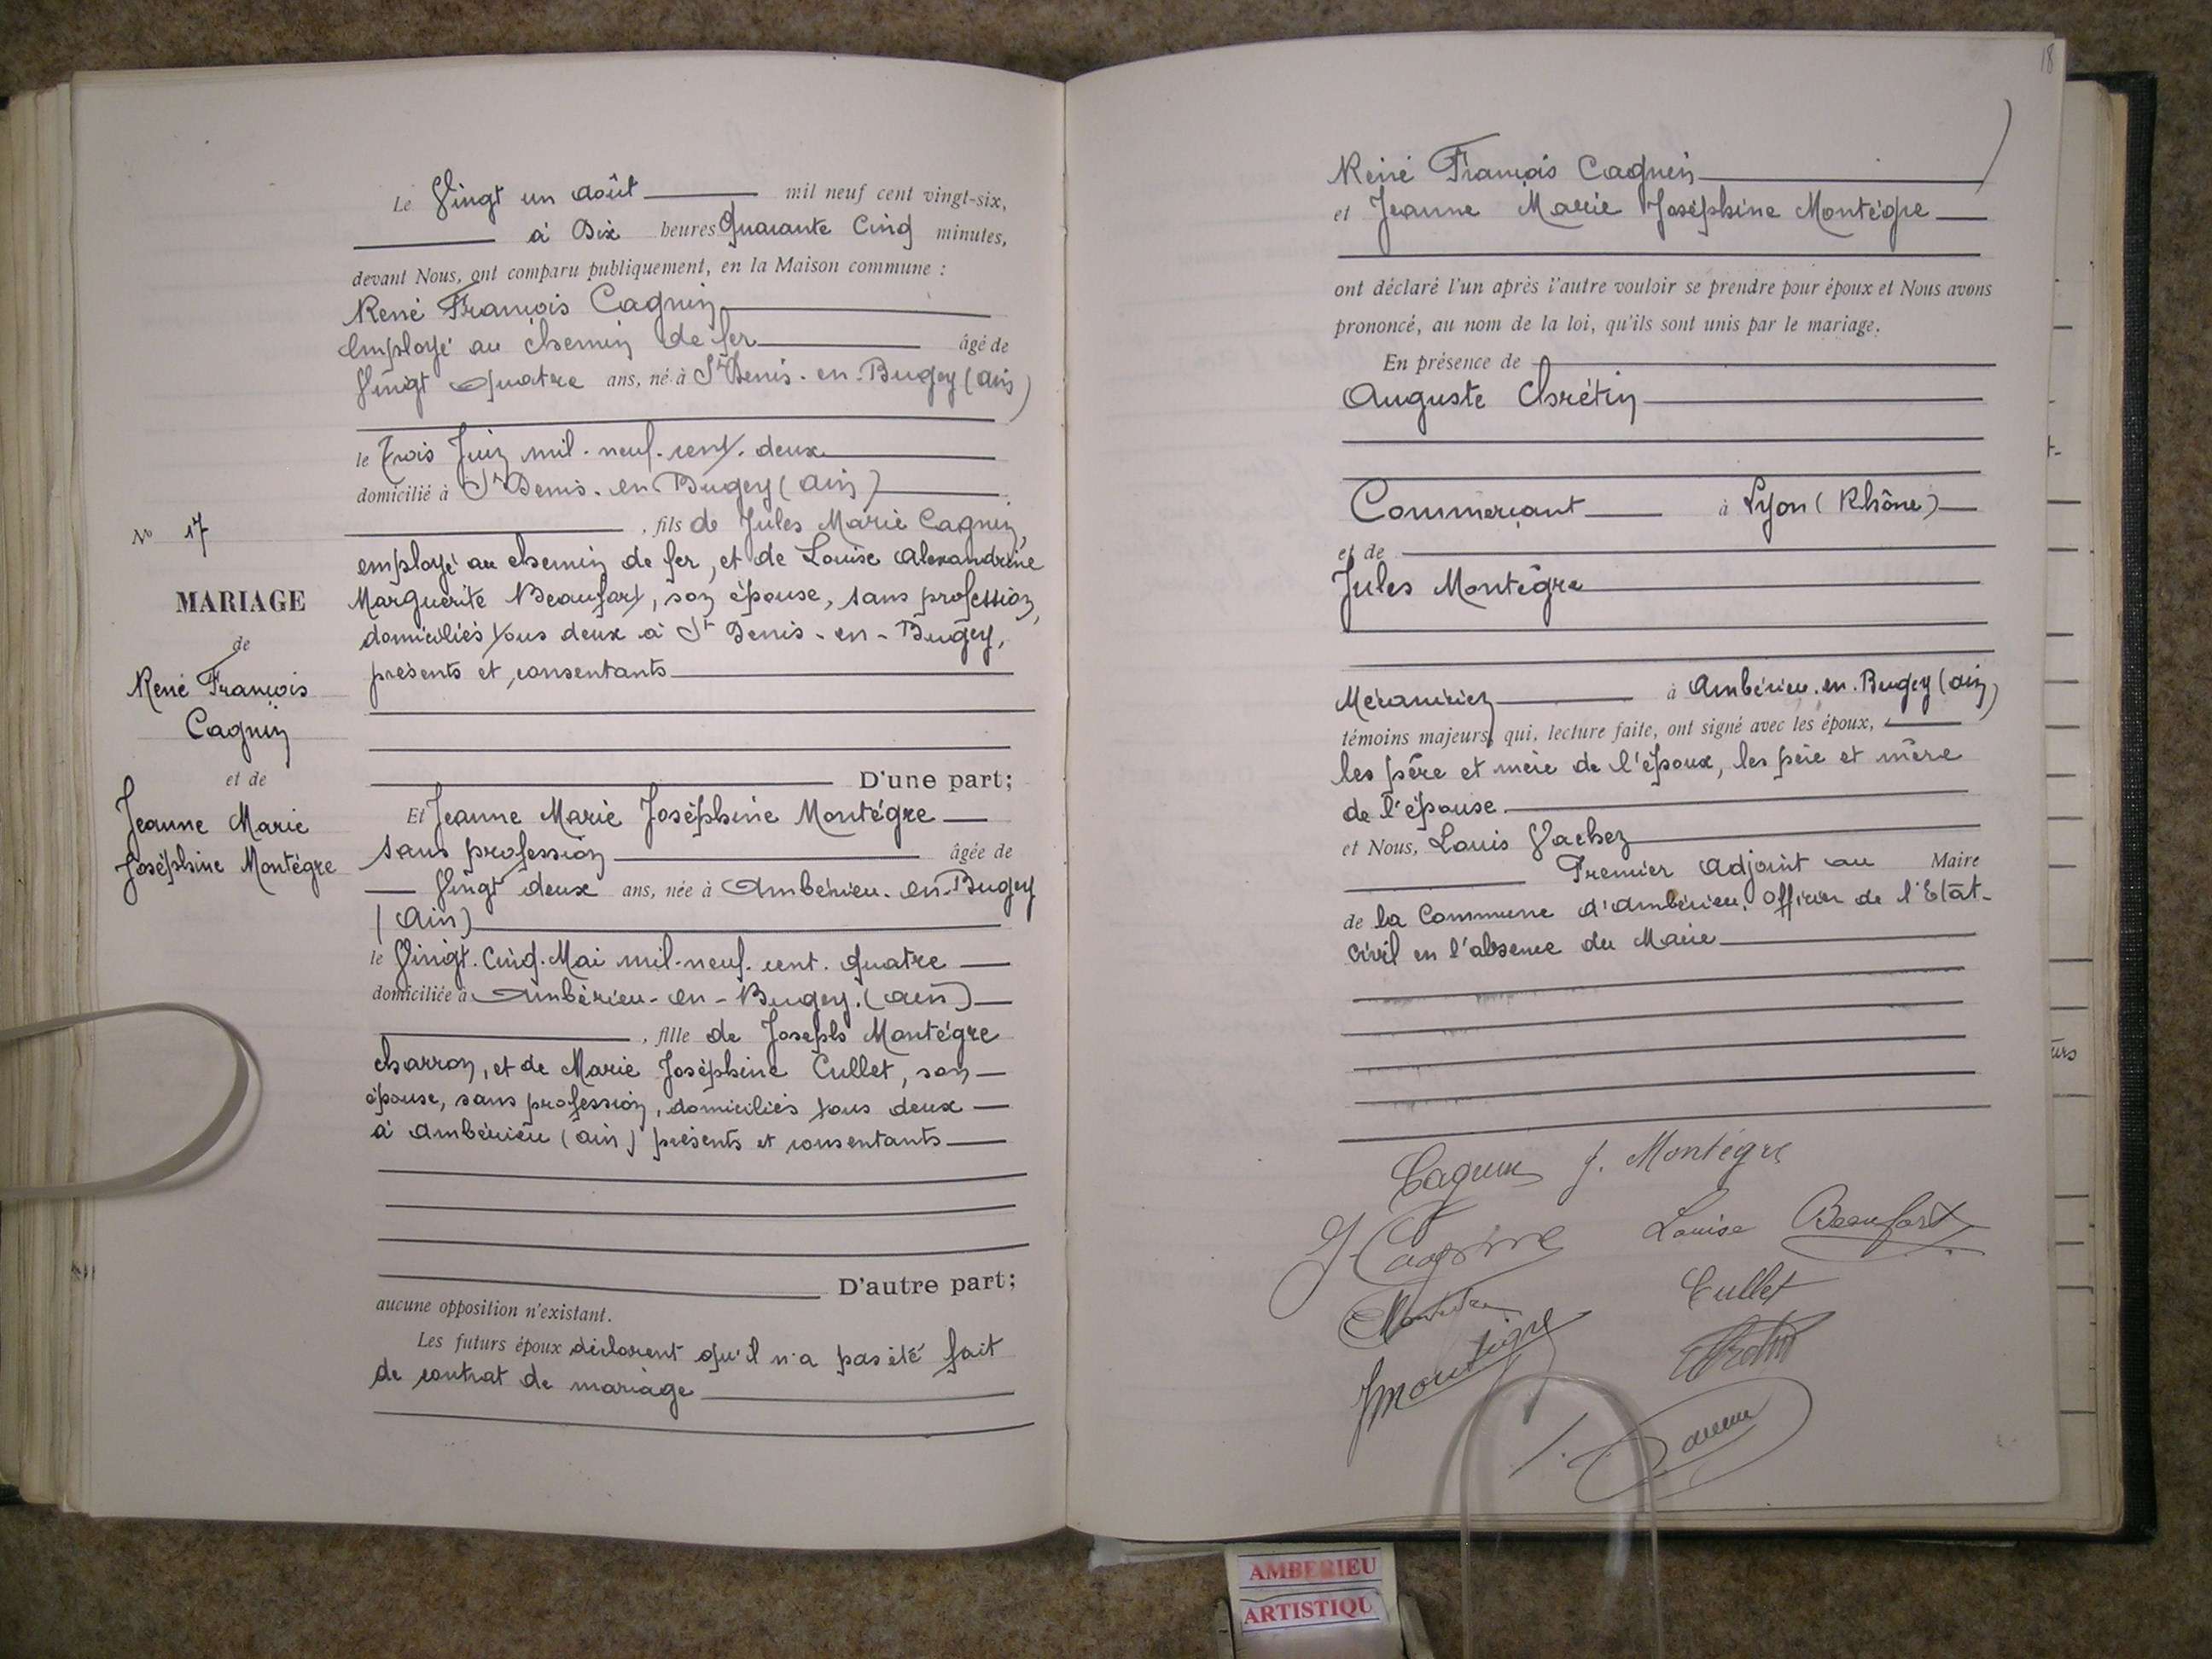 N° 17
MARIAGE
de
René François
Cagnin
et de
Jeanne Marie
Joséphine Montégre
Le Vingt un août mil neuf cent vingt-six,
à Dix heures Quarante Cinq minutes,
devant Nous, ont comparu publiquement, en la Maison commune :
René François Cagnin
employé au chemin de fer âgé de
Vingt quatre ans, né à St Denis-en-Bugey (Ain)
le Trois Juin mil-neuf-cent-deux
domicilié à St Denis-en-Bugey (Ain)
, fils de Jules Marie Cagnin,
employé au chemin de fer, et de Louise Alexandrine
Marguerite Beaufort, son épouse, sans profession,
domiciliés tous deux à St Denis-en-Bugey,
présents et consentants
D'une part;
Et Jeanne Marie Joséphine Montégre
sans profession âgée de
Vingt deux ans, née à Ambérieu-en-Bugey
(Ain)
le Vingt-Cinq-Mai mil-neuf-cent-quatre
domiciliée à Ambérieu-en-Bugey.(Ain)
, fille de Joseph Montégre
charron, et de Marie Joséphine Cullet, son
épouse, sans profession, domiciliés tous deux
à Ambérieu (Ain) présents et consentants
D'autre part;
aucune opposition n'existant.
Les futurs époux déclarent qu'il n'a pas été fait
de contrat de mariage
18
René François Cagnin
et Jeanne Marie Joséphine Montégre
ont déclaré l'un après l'autre vouloir se prendre pour époux et Nous avons
prononcé, au nom de la loi, qu'ils sont unis par le mariage.
En présence de
Auguste Chrétin
Commerçant à Lyon (Rhône)
et de
Jules Montégre
Mécanicien à Ambérieu-en-Bugey (Ain)
témoins majeurs, qui, lecture faite, ont signé avec les époux,
les père et mère de l'époux, les père et mère
de l'épouse
et Nous, Louis Vachez
Premier Adjoint au Maire
de la Commune d'Ambérieu, Officier de l'Etat-
Civil en l'absence du Maire
Cagnin J. Montégre
J. Cagnin Louise Beaufort
Montégre Cullet
J Montégre
AMBERIEU
ARTISTIQU